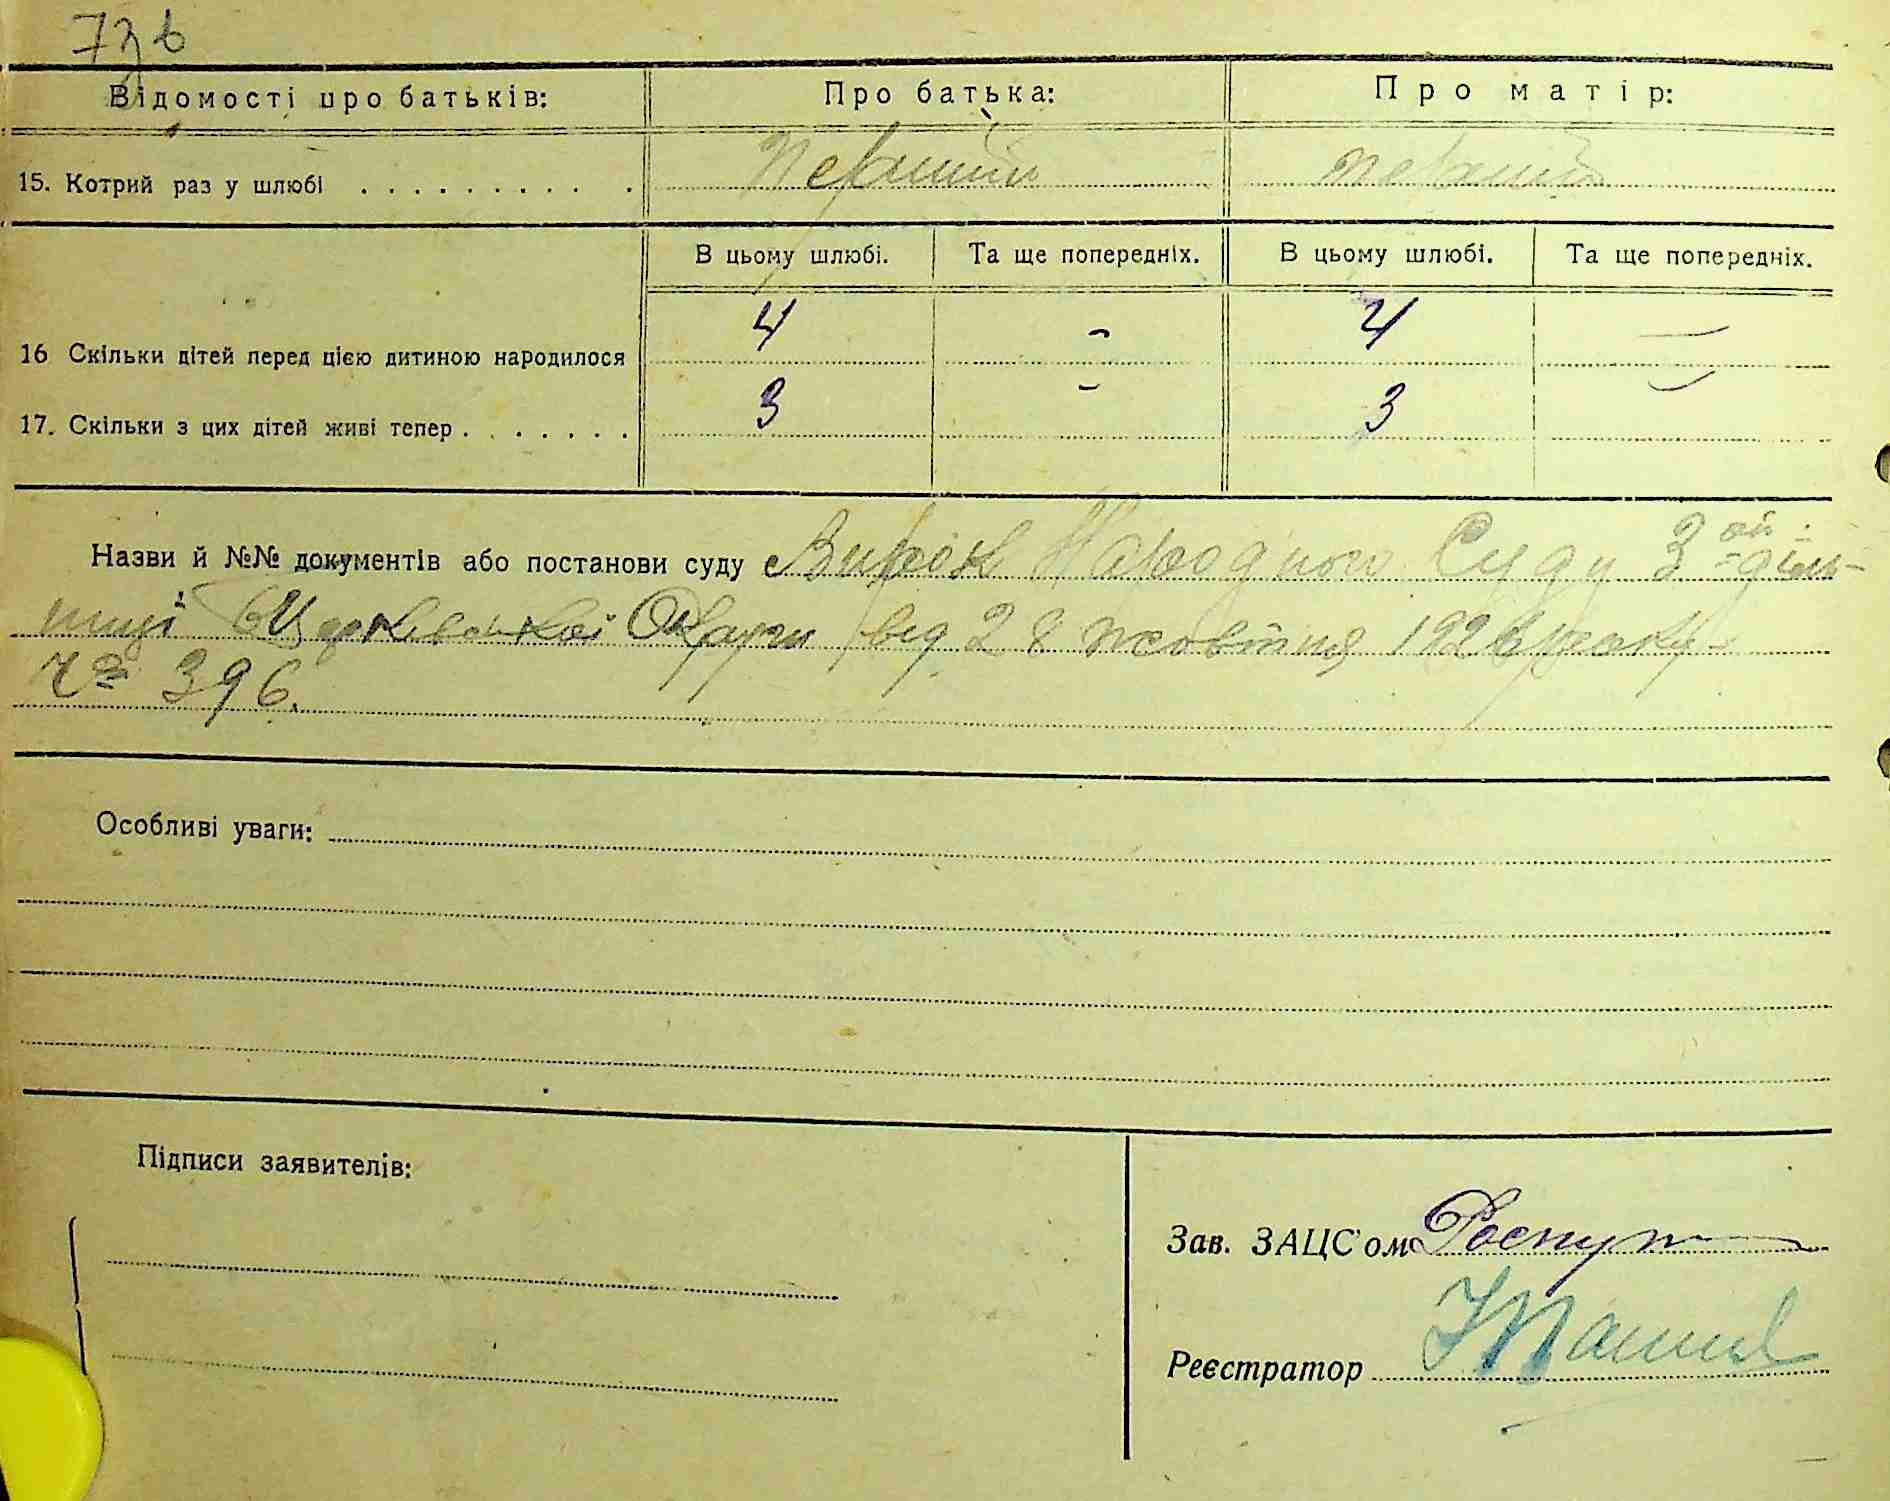 73б
Відомості про батьків: Про батька: Про матір:
15. Котрий раз у шлюбі . . . . . . . . . . Первий Первий
В цьому шлюбі. Та ще попередніх. В цьому шлюбі. Та ще попередніх.
16 Скільки дітей перед цією дитиною народилося 4 - 4 —
17. Скільки з цих дітей живі тепер . . . . . . . 3 - 3 —
Назви й №№ документів або постанови суду Вирок Народного Суду 3ой діль-
ниці БЦерківської Округи від 28 жовтня 1926 року
№ 396.
Особливі уваги:
Підписи заявителів:
Зав. ЗАЦС'ом
Реєстратор